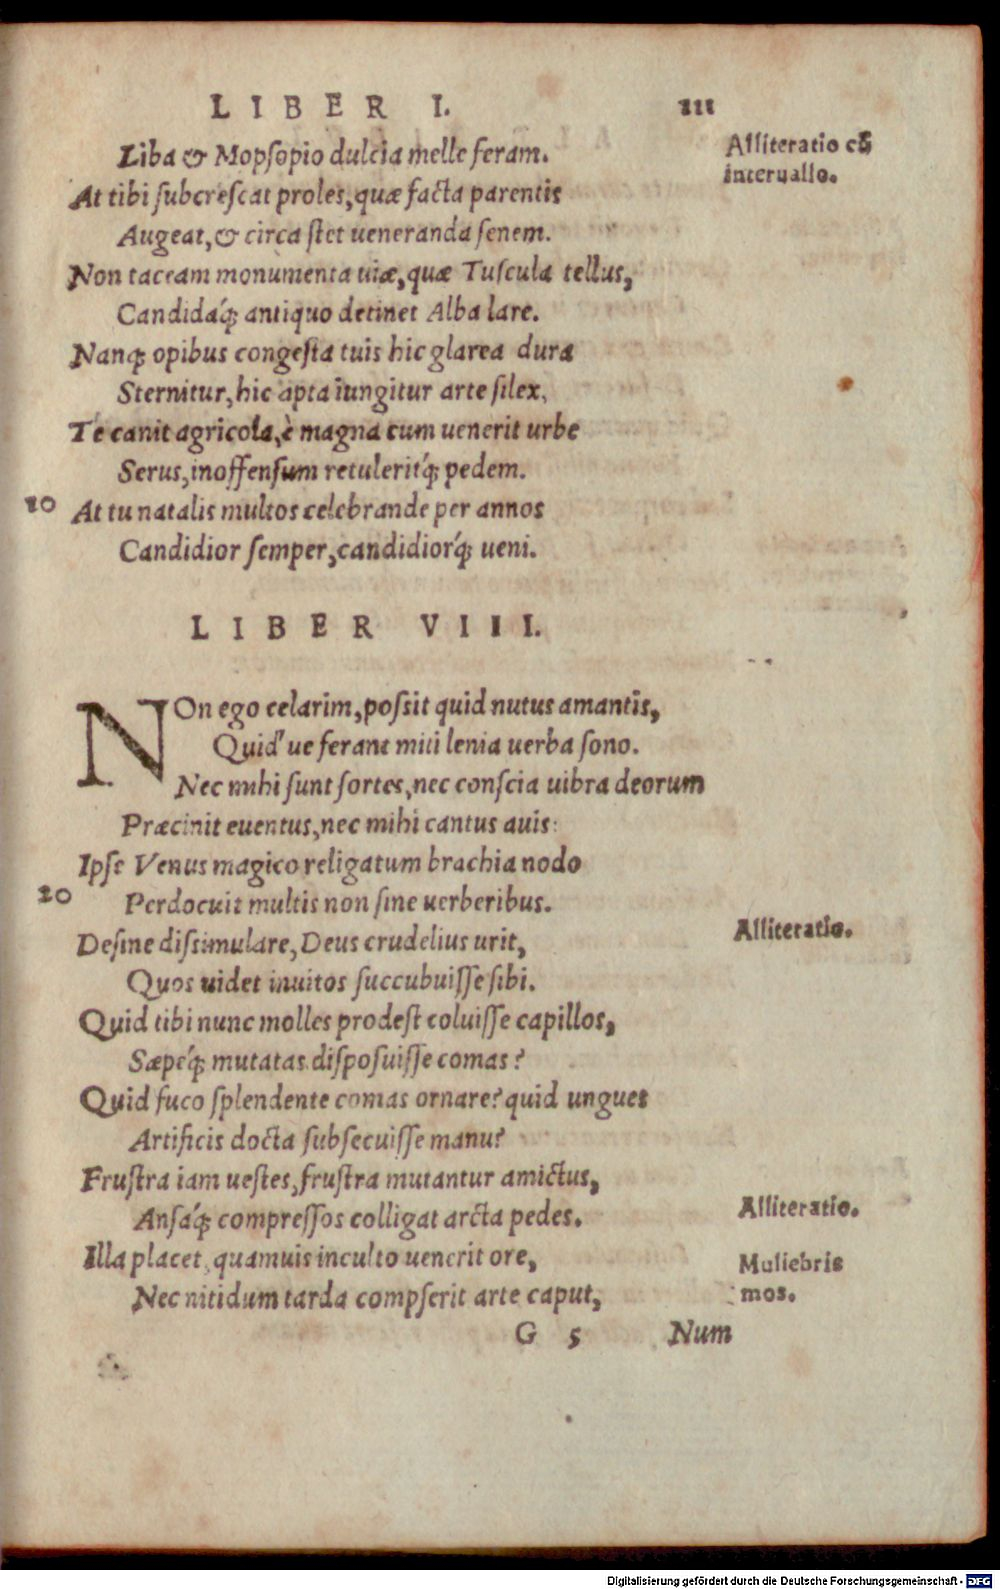 LIBER I. 111
Liba & Mopsopio dulcia melle feram.
Alliteratio cũ
interuallo.
At tibi subcrescat proles, quæ facta parentis
Augeat, & circa stet ueneranda senem.
Non taceam monumenta uiæ, quæ Tuscula tellus,
Candidaq́; antiquo detinet Alba lare.
Nanq; opibus congesta tuis hic glarea dura
Sternitur, hic apta iungitur arte silex.
Te canit agricola, è magna cum uenerit urbe
Serus, inoffensum retuleritq́; pedem.
20 At tu natalis multos celebrande per annos
Candidior semper, candidiorq́; ueni.
LIBER VIII.
NOn ego celarim, possit quid nutus amantis,
Quid' ue ferant miti lenia uerba sono.
Nec mihi sunt sortes, nec conscia uibra deorum
Præcinit euentus, nec mihi cantus auis:
Ipse Venus magico religatum brachia nodo
20 Perdocuit multis non sine uerberibus.
Desine dissimulare, Deus crudelius urit,
Alliteratio.
Quos uidet inuitos succubuisse sibi.
Quid tibi nunc molles prodest coluisse capillos,
Sæpeq́; mutatas disposuisse comas?
Quid fuco splendente comas ornare? quid ungues
Artificis docta subsecuisse manu?
Frustra iam uestes, frustra mutantur amictus,
Ansaq́; compressos colligat arcta pedes.
Alliteratio.
Illa placet, quamuis inculto uenerit ore,
Muliebris
mos.
Nec nitidum tarda compserit arte caput,
G 5 Num
Digitalisierung gefördert durch die Deutsche Forschungsgemeinschaft - DFG